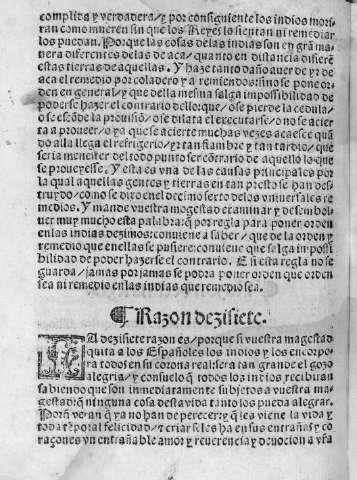 complita y verdadera/y por consiguiente los indios mori
ran como mueren sin que los Reyes lo sientan ni remediar
los puedan. Porque las cosas de las indias son en grã ma
nera diferentes de las de aca/quanto en distancia disierẽ
estas tierras de aquellas. Y haze tanto daño auer de yr de
aca el remedio por coladero y a remiendos: si no se pone or
den en general/y que della mesma salga impossibilidad de
poderse hazer el contrario dello: que/o se pierde la cedula/
o se escõde la prouisiõ/o se dilata el executarse/o no se acier
ta a proueer/o ya que se acierte muchas vezes acaesce quã
do alla llega el refrigerio/yr tan fiambre y tan tardio/que
seria menester del todo punto ser cõtrario de aquello lo que
se proueyesse. Y esta es vna de las causas principales por
la qual aquellas gentes y tierras en tan presto se han des
truydo/como se dixo en el decimo sexto de los vniuersales re
medios. Y mande vuestra magestad examinar y desembol
uer muy mucho esta palabra: q̃ por regla para poner orden
en las indias dezimos: conuiene a saber/que de la orden y
remedio que en ellas se pusiere: conuiene que salga impossi
bilidad de poder hazerse el contrario. E si esta regla no se
guarda/jamas por jamas se podra poner orden que orden
sea ni remedio en las indias que remedio sea.
¶ Razon dezisiete.
LA dezisiete razon es/porque si vuestra magestad
quita a los Españoles los indios y los encorpo
ra todos en su corona real: sera tan grande el gozo
alegria/y consuelo q̃ todos los indios recibiran
sabiendo que son inmediatamente subjetos a vuestra ma
gestad: q̃ ninguna cosa desta vida tanto los pueda alegrar.
Porq̃ veran q̃ ya no han de perecer: y q̃ les viene la vida y
toda tẽporal felicidad/et criarse les ha en sus entrañas y co
raçones vn entrañable amor y reuerencia y deuocion a vr̃a